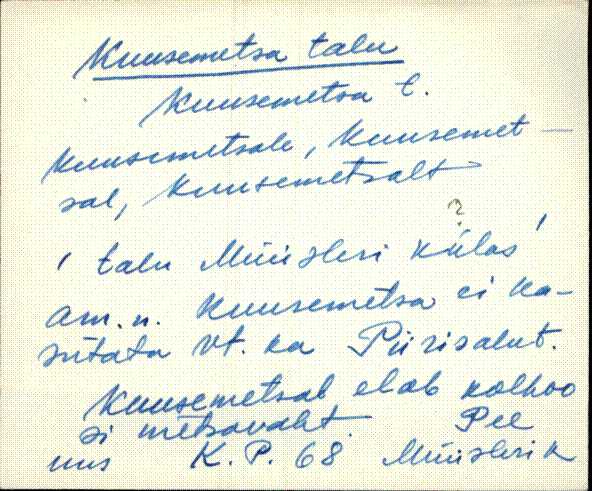 Kuusemetsa talu
Kuusemetsa t.
Kuusemetsale, Kuusemet-
sal, Kuusemetsalt
?
' talu Müüsleri külas'
Am.n. Kuusemetsa ei ka-
sutata vt. ka Piirisalut.
Kuusemetsal elab kolhoo
si metsavaht. Pee
uus K.P. 68 Müüslerik